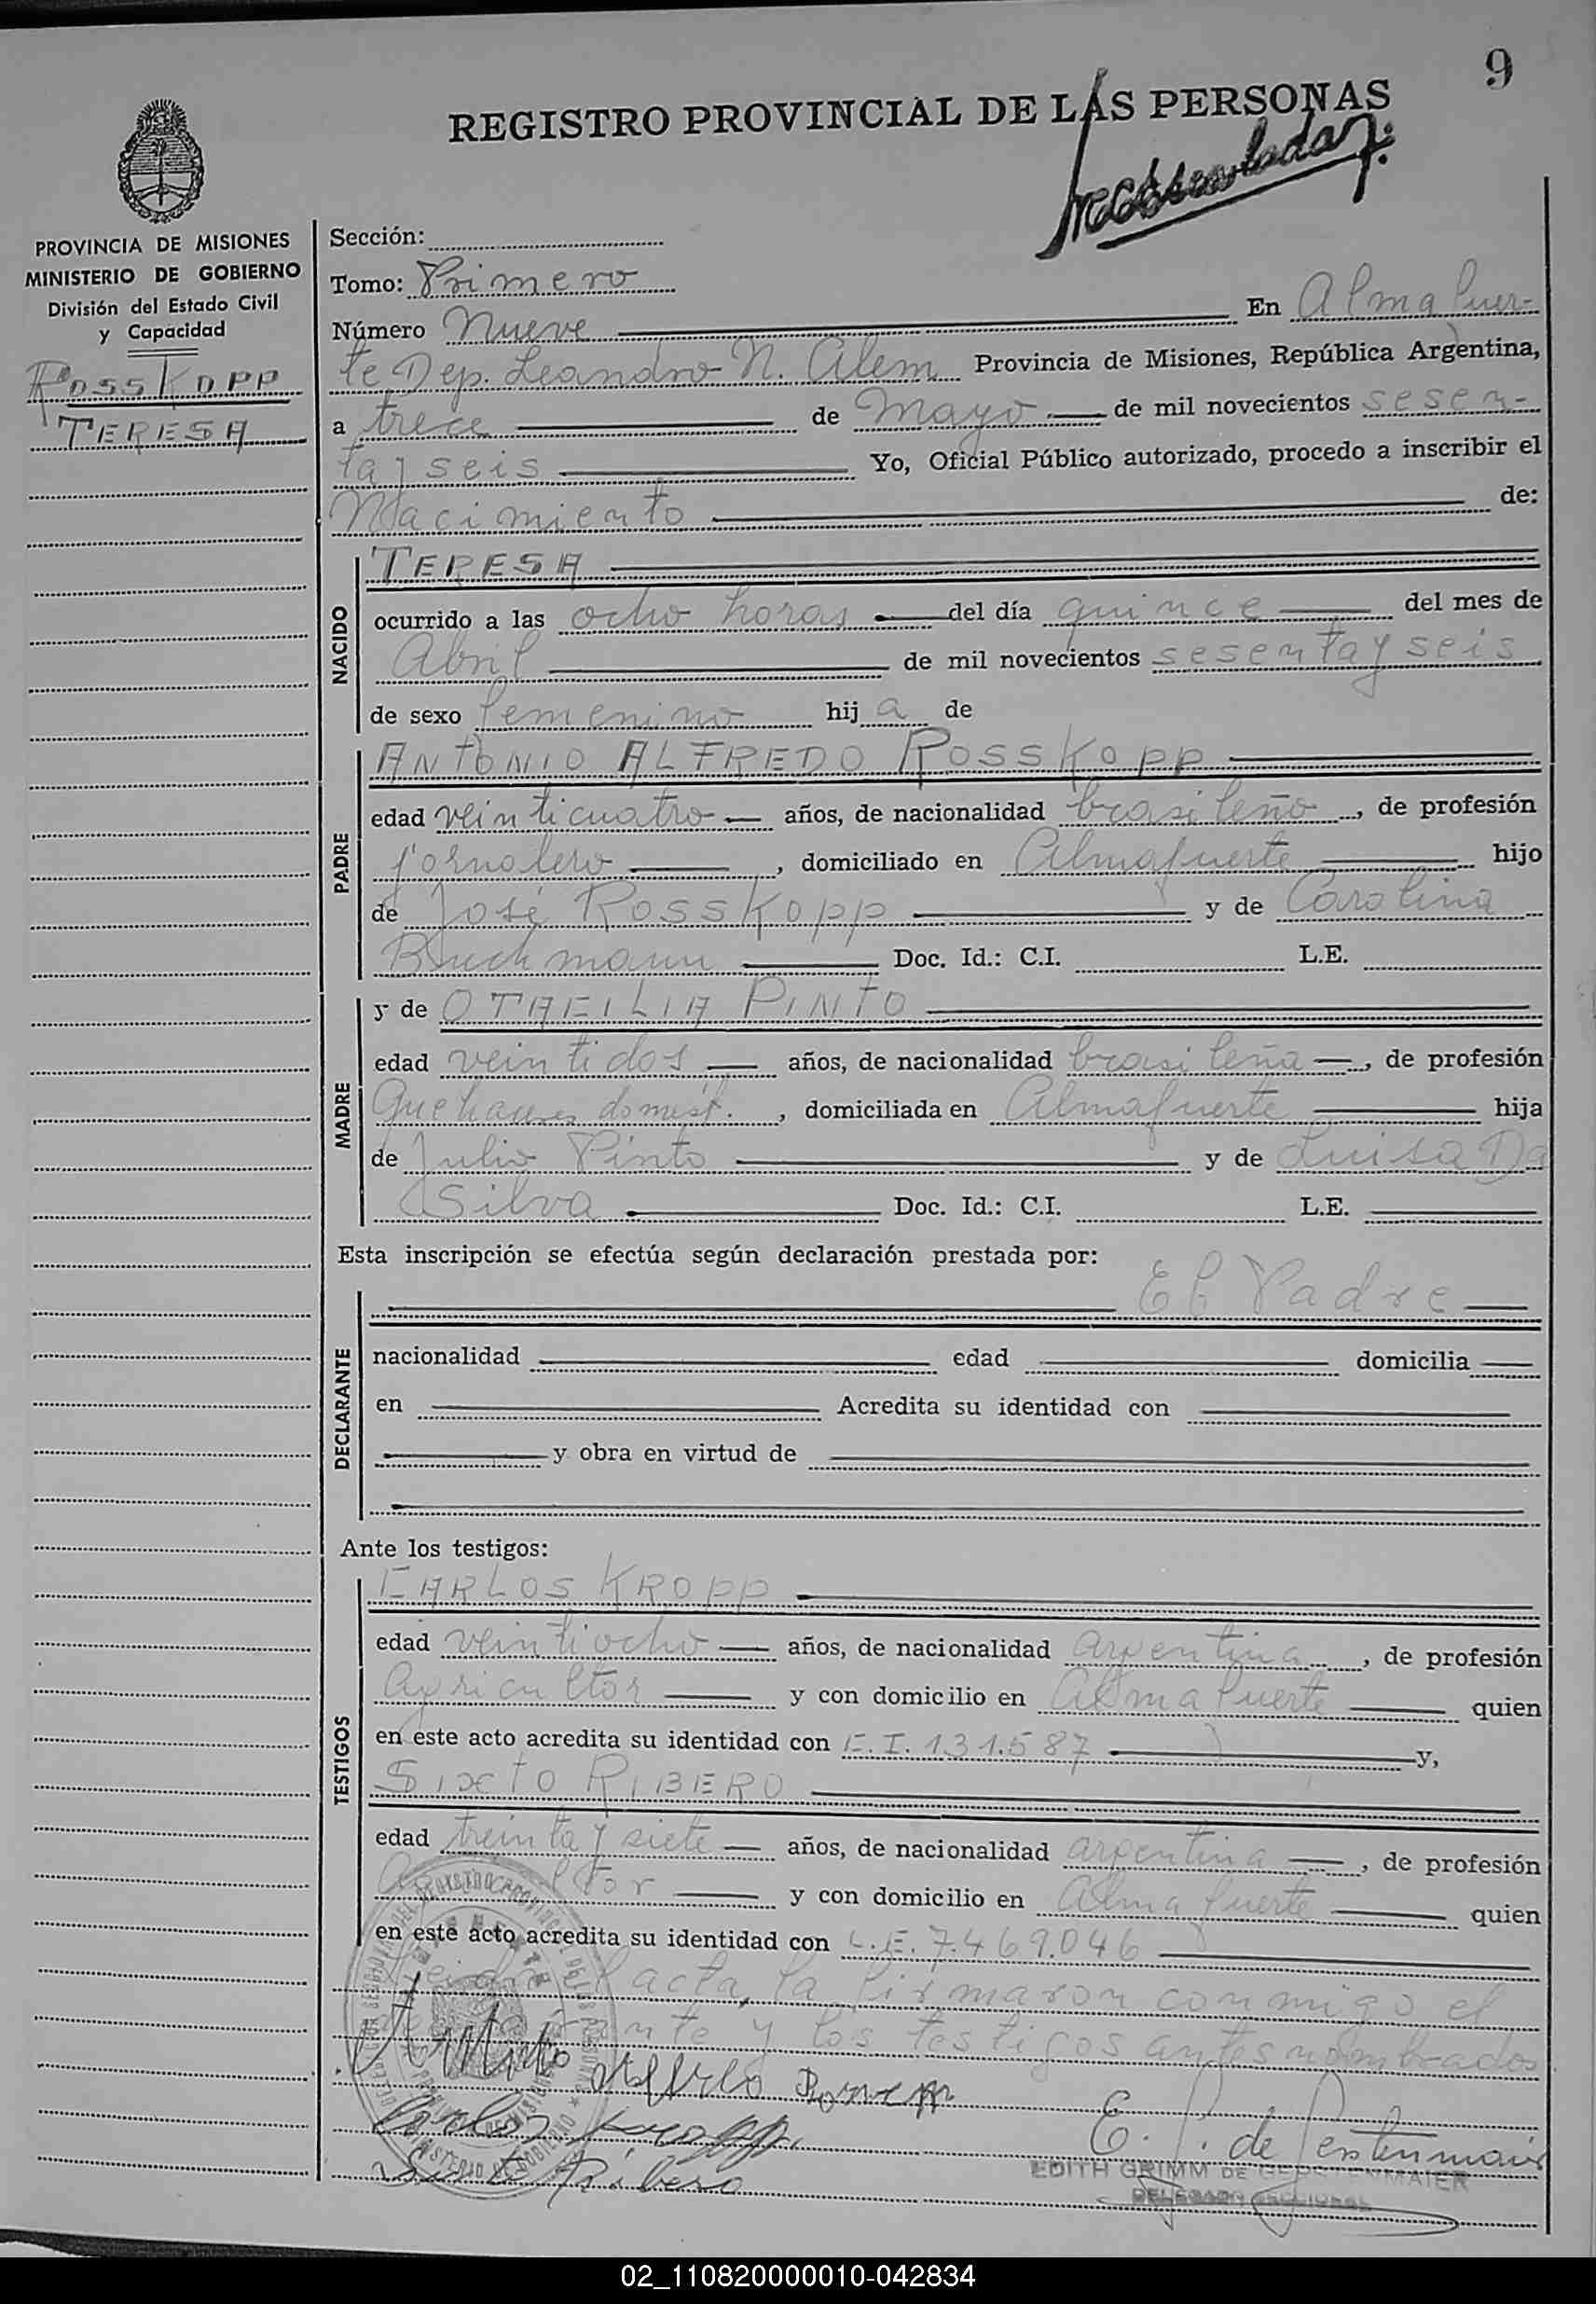 9
REGISTRO PROVINCIAL DE LAS PERSONAS
PROVINCIA DE MISIONES
MINISTERIO DE GOBIERNO
División del Estado Civil
y Capacidad
ROSSKOPP
TERESA
Sección:
Tomo: Primero
Número Nueve En Almafuer-
te, Dep. Leandro N. Alem Provincia de Misiones, República Argentina,
a trece de Mayo de mil novecientos sesen-
ta y seis Yo, Oficial Público autorizado, procedo a inscribir el
Nacimiento de:
NACIDO
TERESA
ocurrido a las ocho horas del día quince del mes de
Abril de mil novecientos sesenta y seis
de sexo femenino hija de
PADRE
ANTONIO ALFREDO ROSSKOPP
edad veinticuatro años, de nacionalidad brasileño, de profesión
jornalero, domiciliado en Almafuerte hijo
de José Rosskopp y de Carolina
Bruchmann Doc. Id.: C.I. L.E.
MADRE
y de OTAEILIA PINTO
edad veintidos años, de nacionalidad brasileña, de profesión
Quehaceres domést., domiciliada en Almafuerte hija
de Julio Pinto y de Luisa Da
Silva Doc. Id.: C.I. L.E.
Esta inscripción se efectúa según declaración prestada por:
DECLARANTE
El Padre
nacionalidad edad domicilia
en Acredita su identidad con
y obra en virtud de
Ante los testigos:
TESTIGOS
CARLOS KROPP
edad veintiocho años, de nacionalidad argentina, de profesión
Agricultor y con domicilio en Almafuerte quien
en este acto acredita su identidad con C.I. 131.587 y,
SIXTO RIBERO
edad treinta y siete años, de nacionalidad argentina, de profesión
Agricultor y con domicilio en Almafuerte quien
en este acto acredita su identidad con L.E. 7.469.046
Leida el acta, la firmaron conmigo el
declarante y los testigos antes nombrados
Antonio Alfredo
Carlos Kropp
Sixto Ribero
E. G. de Gerstenmaier
EDITH GRIMM DE GERSTENMAIER
DELEGADO SECCIONAL
02_110820000010-042834